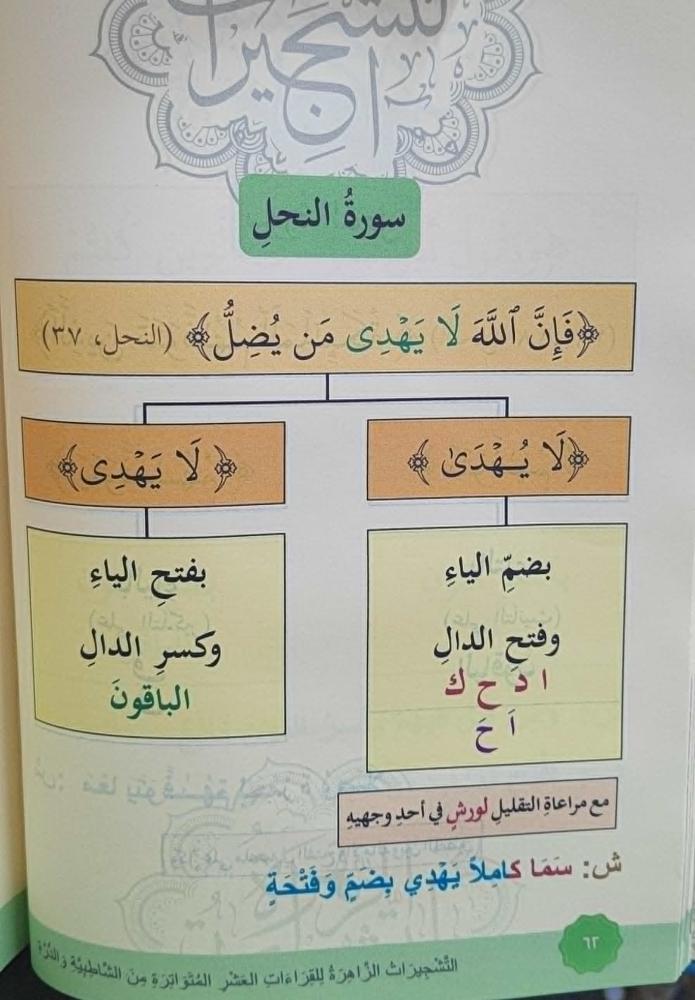 التشجيرات
سورةُ النحلِ
﴿فَإِنَّ ٱللَّهَ لَا يَهْدِى مَن يُضِلُّ﴾ (النحل، ٣٧)
﴿لَا يُهْدَىٰ﴾
﴿لَا يَهْدِى﴾
بضمِّ الياءِ
وفتحِ الدالِ
ا د ح ك
اَ حَ
بفتحِ الياءِ
وكسرِ الدالِ
الباقونَ
مع مراعاةِ التقليلِ لورشٍ في أحدِ وجهيهِ
ش: سَمَا كَامِلاً يَهْدِي بِضَمٍّ وَفَتْحَةٍ
٦٢
التَّشْجِيرَاتُ الزَّاهِرَةُ لِلقِرَاءَاتِ العَشْرِ المُتَوَاتِرَةِ مِنَ الشَّاطِبِيَّةِ وَالدُّرَّةِ